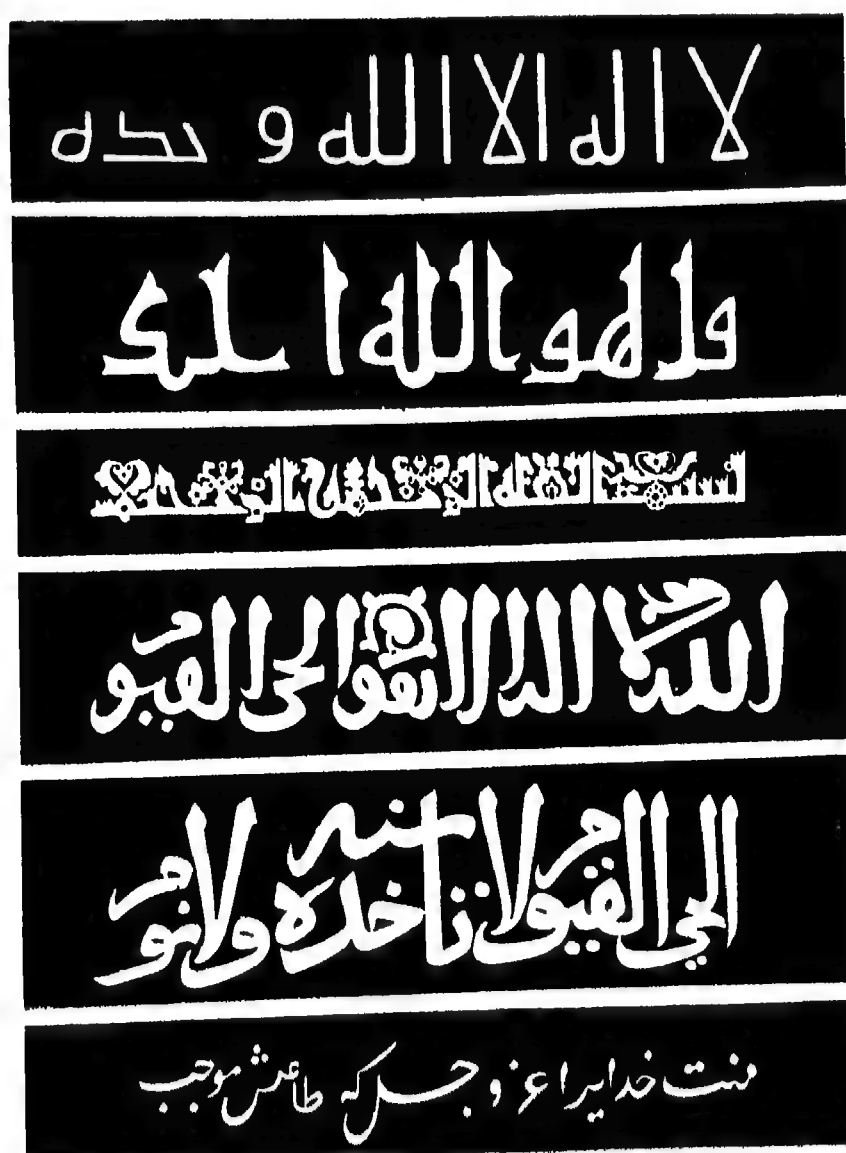 لا اله الا الله وحده
قل هو الله احد
بسم الله الرحمن الرحيم
الله لا اله الا هو الحى القيوم
الحي القيوم لا تأخذه سنه ولا نوم
منت خدایرا عز و جل که طاعتش موجب